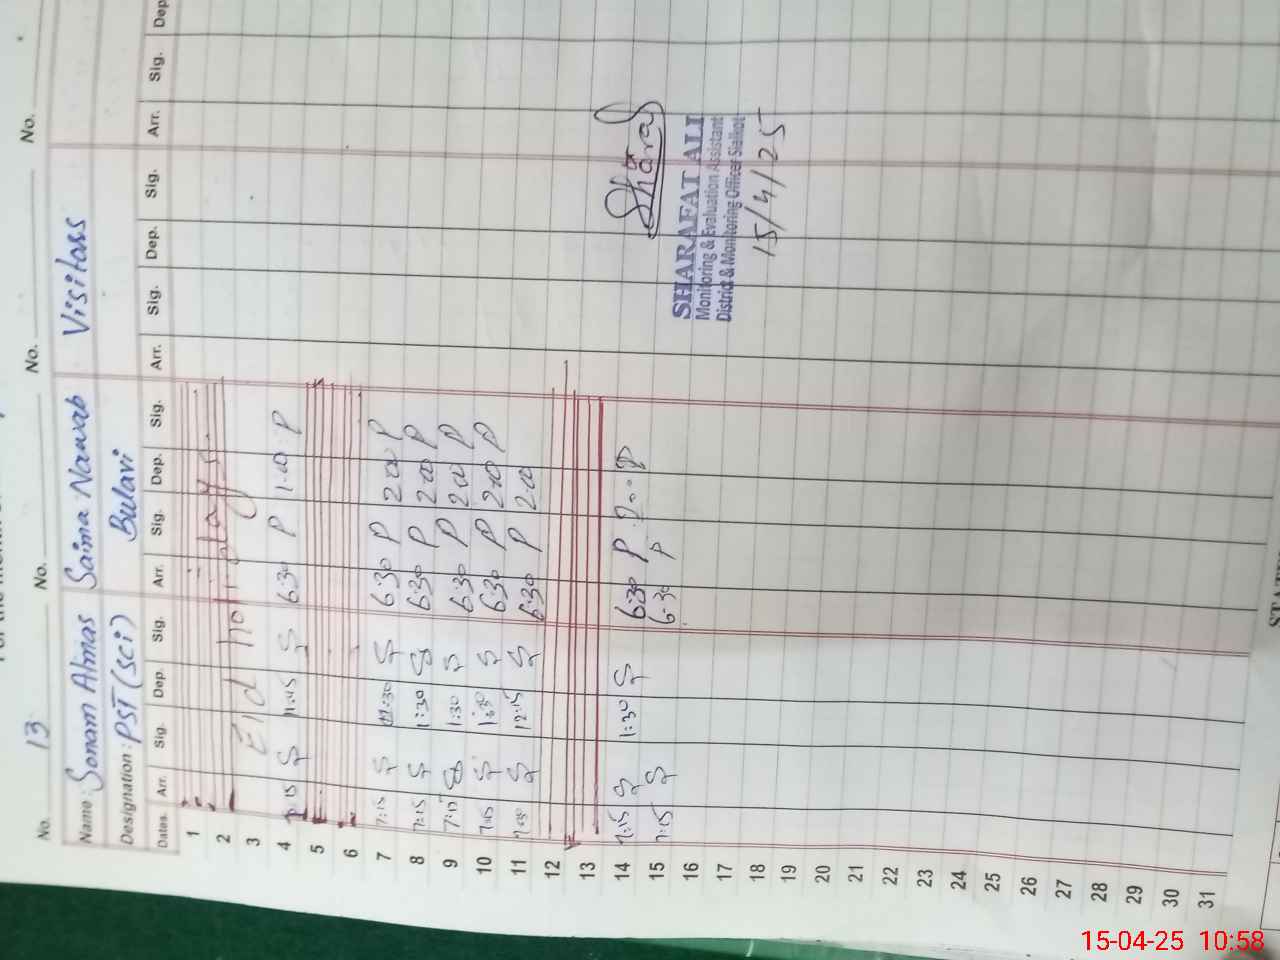 No. 13 No. No. No.
Name: Sonam Almas Saima Nawab Visitors
Designation: PST (Sci) Bulavi
Dates. Arr. Sig. Dep. Sig. Arr. Sig. Dep. Sig. Arr. Sig. Dep. Sig. Arr. Sig. Dep.
1
2
3 Eid holidays
4 7:15 S 11:45 S 6:30 P 1:00 P
5
6
7 7:15 S S 6:30 P 2:00 P
8 7:15 S 1:30 S 6:30 P 2:00 P
9 7:15 S 1:30 S 6:30 P 2:00 P
10 S S 6:30 P 2:00 P
11 S 12:15 S 6:30 P 2:00
12
13
14 7:15 S 1:30 S 6:30 P P
15 7:15 S 6:30 P
16
17
18
19
20
21
22
23
24
25
26
27
28
29
30
31
Sharaf
SHARAFAT ALI
Monitoring & Evaluation Assistant
District & Monitoring Officer Sialkot
15/4/25
15-04-25 10:58